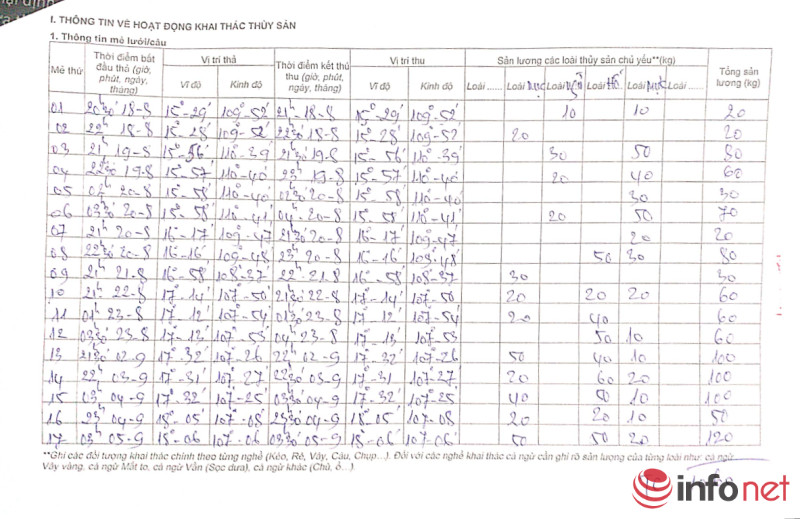 I. THÔNG TIN VỀ HOẠT ĐỘNG KHAI THÁC THỦY SẢN
1. Thông tin mẻ lưới/câu
Mẻ thứ | Thời điểm bắt đầu thả (giờ, phút, ngày, tháng) | Vị trí thả | Thời điểm kết thúc thu (giờ, phút, ngày, tháng) | Vị trí thu | Sản lượng các loài thủy sản chủ yếu**(kg) | Tổng sản lượng (kg)
Vĩ độ | Kinh độ | Vĩ độ | Kinh độ | Loài ...... | Loài Mực | Loài | Loài Hố | Loài Mực | Loài ......
01 20h30' 18-8 15°-29' 109°-52' 21h 18-8 15°-29' 109°-52' 10 10 20
02 22h 18-8 15°-28' 109-52' 22h30 18-8 15°-28' 109°-52 20 20
03 21h 19-8 15°-56' 110°-39' 21h30 19-8 15°-56' 110°-39' 30 50 80
04 22h30 19-8 15°-57' 110°-40' 23h 19-8 15°-57' 110°-40' 20 40 60
05 02h 20-8 15°-58' 110°-40' 02h30 20-8 15°-58' 110°-40 30 30
06 03h30 20-8 15°-58' 110°-41' 04h 20-8 15°-58' 110°-41' 20 50 70
07 21h 20-8 16°-17' 109-47 21h30 20-8 16°-17' 109-47 20 20
08 22h30 20-8 16°-16' 109-48 23h 20-8 16-16' 108-48' 50 30 80
09 21h 21-8 16°-58' 108°-37' 22h 21-8 16°-58' 108-37 30 30
10 21h 22-8 17°-14' 107°-50' 21h30 22-8 17°-14' 107°-50 20 20 20 60
11 01h 23-8 17°-12' 107°-54 01h30 23-8 17°-12' 107-54 20 40 60
12 03h30 23-8 17°-13' 107°-53' 04h 23-8 17°-13' 107°-53 50 10 60
13 21h30 02-9 17°-32' 107°-26 22h 02-9 17°-32' 107°-26 50 40 10 100
14 22h 03-9 17°-31' 107°-27' 22h30 03-9 17°-31 107°-27 20 60 20 100
15 03h 04-9 17°-32' 107°-25' 03h30 04-9 17°-32 107°-25 40 50 10 100
16 23h 04-9 18°-05' 107°-08' 23h30 04-9 18°-05' 107-08 20 20 10 50
17 03h 05-9 18°-06 107°-06 03h30 05-9 18°-06' 107°-06' 50 50 20 120
**Ghi các đối tượng khai thác chính theo từng nghề (Kéo, Rê, Vây, Câu, Chụp...). Đối với các nghề khai thác cá ngừ cần ghi rõ sản lượng của từng loài như: cá ngừ
Vây vàng, cá ngừ Mắt to, cá ngừ Vằn (Sọc dưa), cá ngừ khác (Chù, ồ...).
infonet